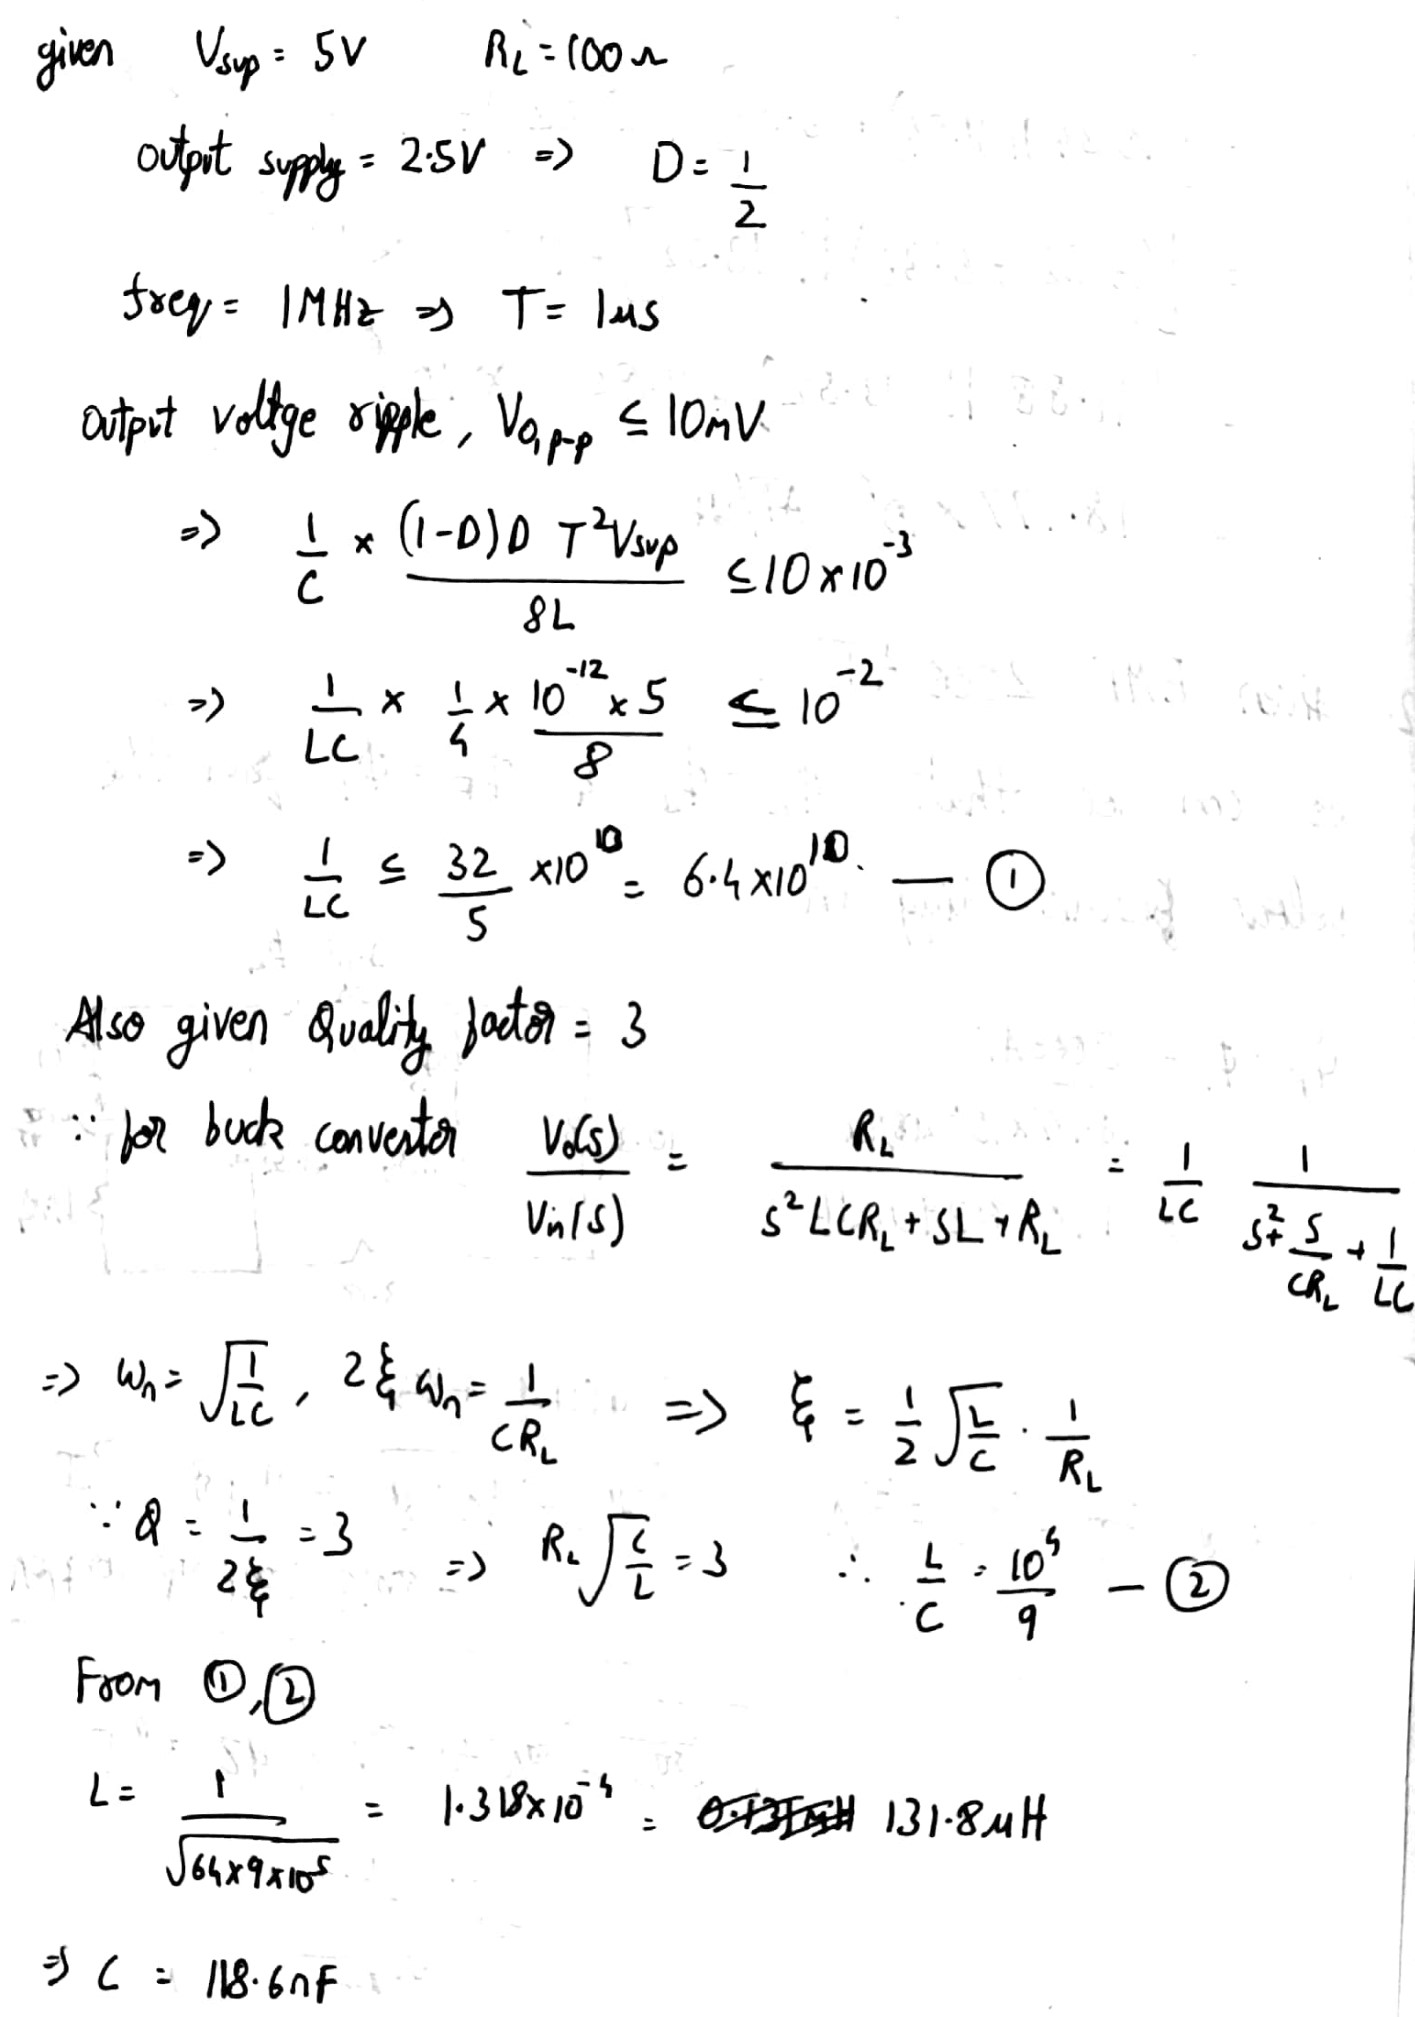 given Vsup = 5V RL = 100 Ω
output supply = 2.5V => D = 1/2
freq = 1MHz => T = 1us
output voltge ripple, Vo,p-p ≤ 10mV
=> 1/C × (1-D)D T²Vsup / 8L ≤ 10×10⁻³
=> 1/LC × 1/4 × 10⁻¹² × 5 / 8 ≤ 10⁻²
=> 1/LC ≤ 32/5 ×10¹⁰ = 6.4×10¹⁰. — ①
Also given Quality factor = 3
∵ for buck convertor Vo(s)/Vin(s) = RL / (s²LCRL + SL + RL) = 1/LC 1 / (s² + s/CRL + 1/LC)
=> ωn = √(1/LC), 2ξωn = 1/CRL => ξ = 1/2 √(L/C) · 1/RL
∵ Q = 1/2ξ = 3 => RL √(C/L) = 3 ∴ L/C = 10⁴/9 — ②
From ①,②
L = 1/√(64×9×10⁵) = 1.318×10⁻⁴ = 131.8μH
=> C = 118.6nF